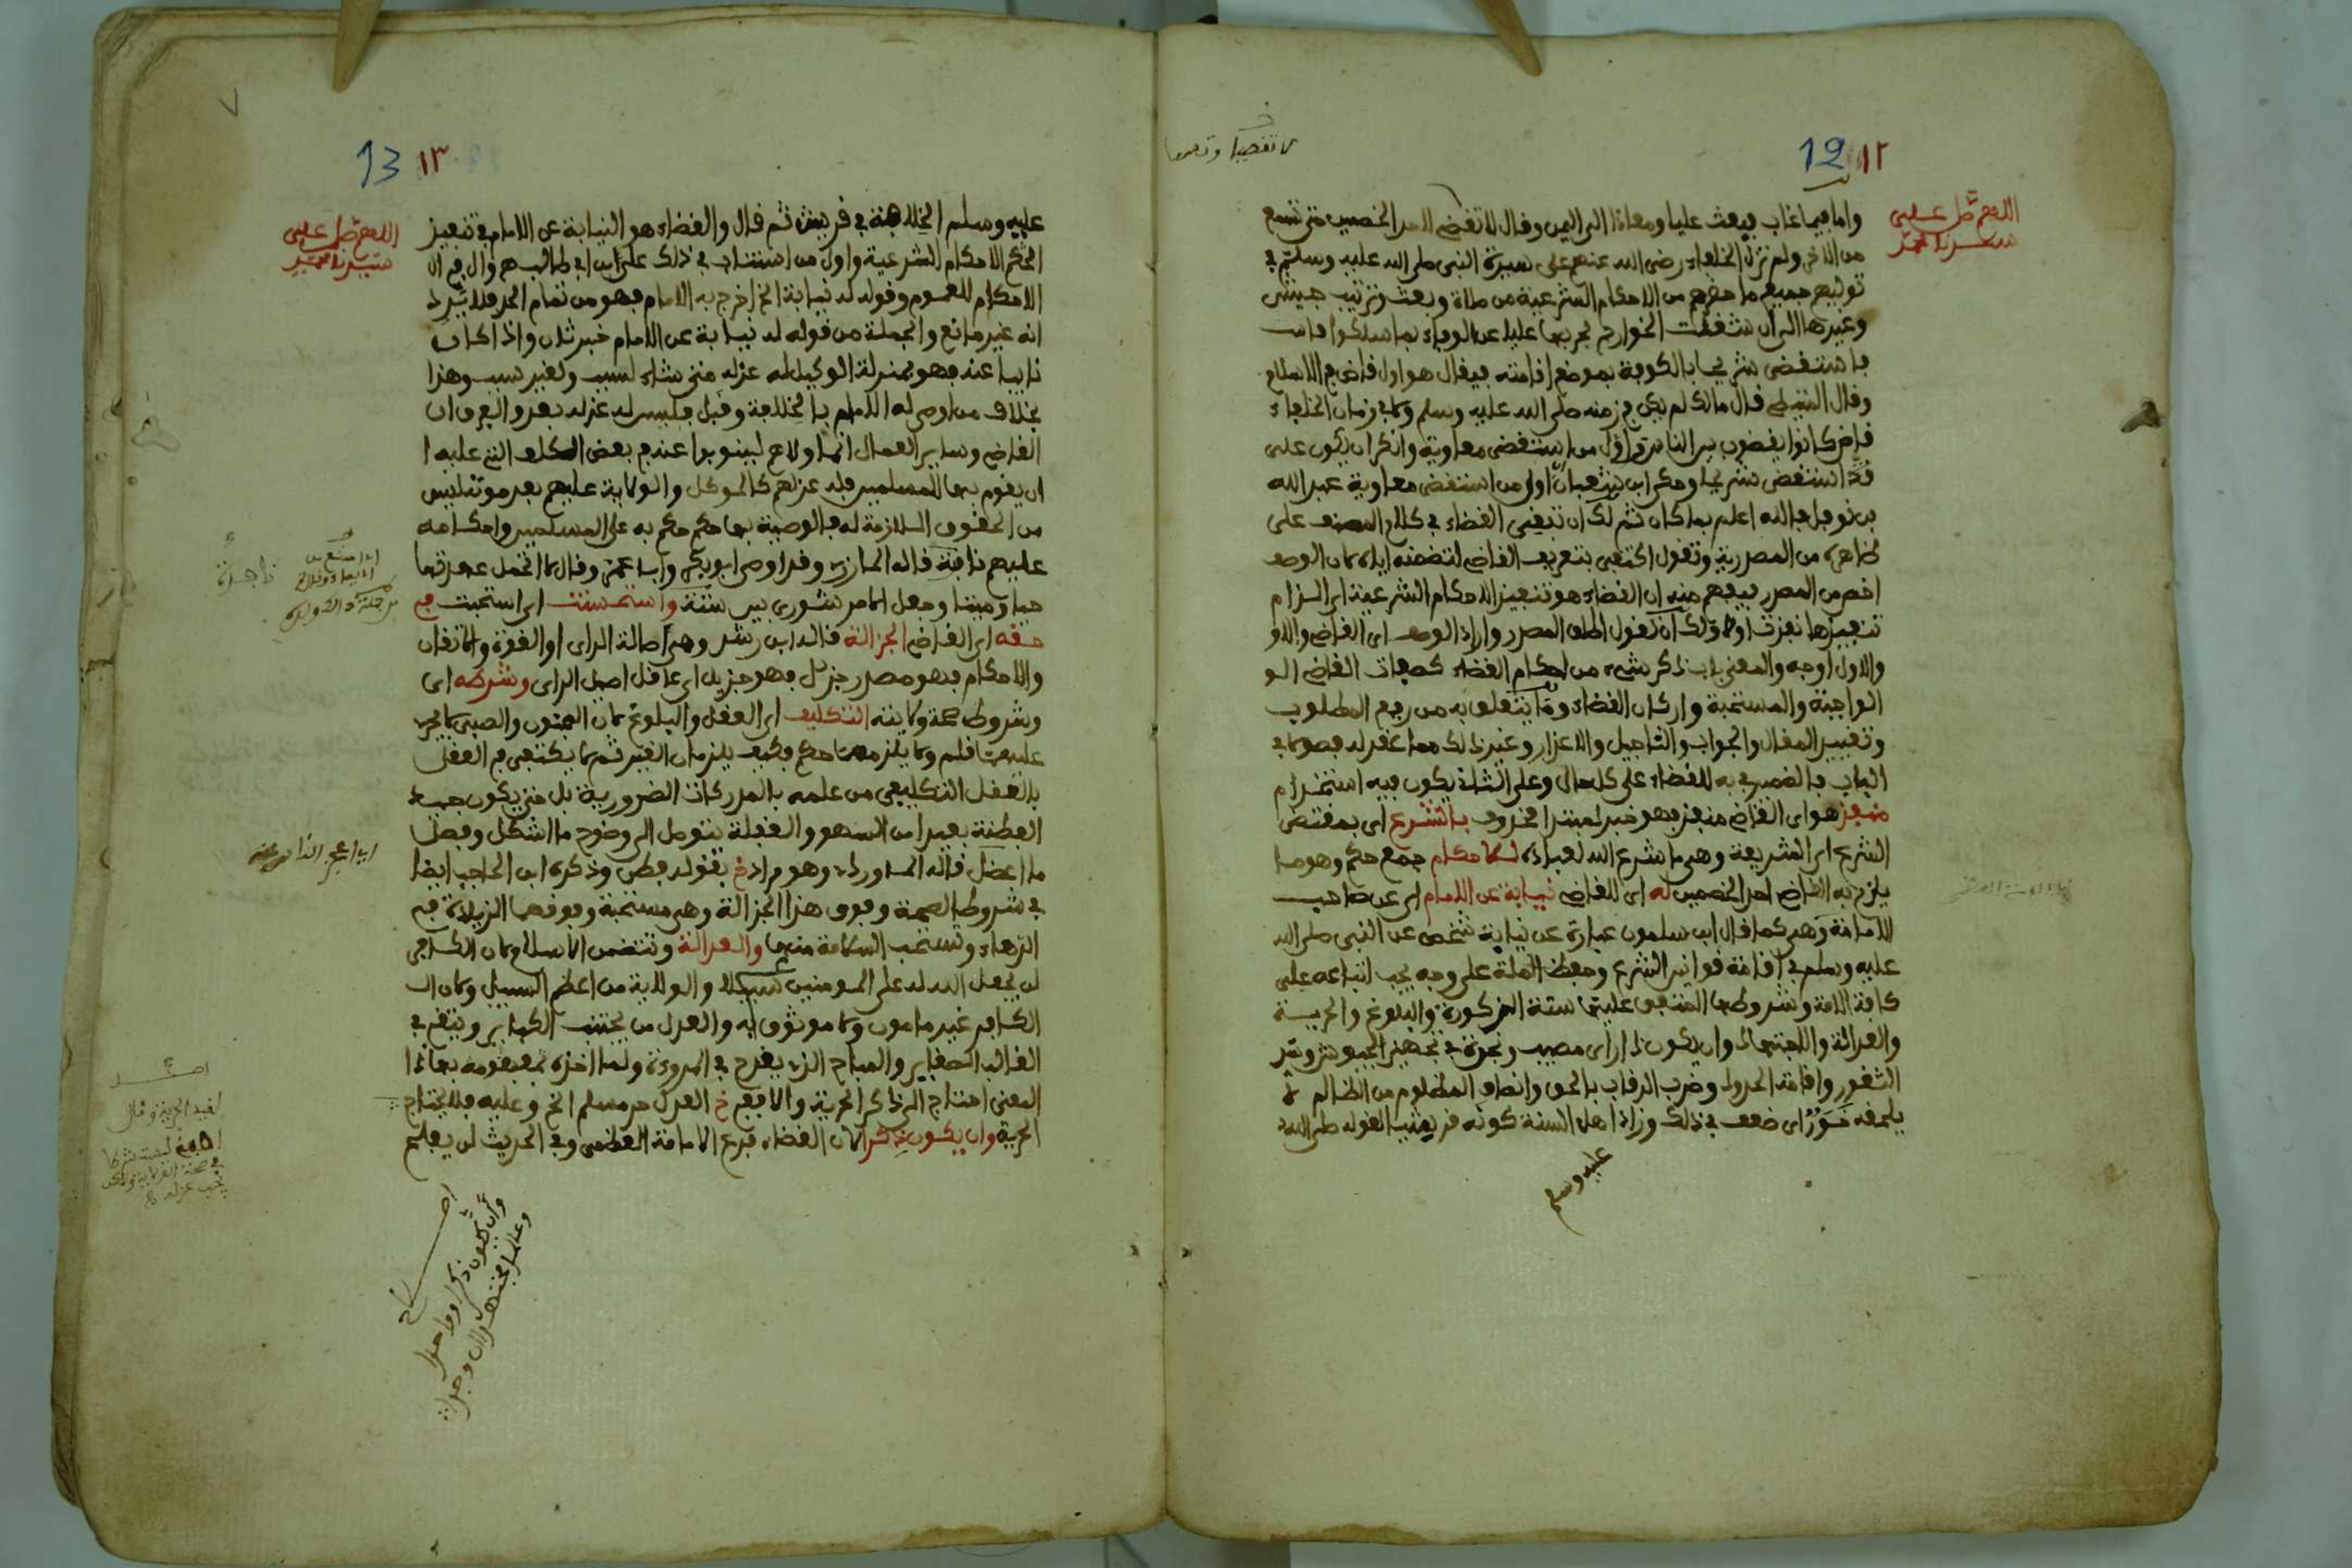 12 ١٢
اللهم صل على
سيدنا محمد
واما فيما غاب فبعث عليا ومعاذا الى اليمن وقال لا تقض لاحد الخصمين حتى تسمع
من الاخر ولم تزل الخلفاء رضى الله عنهم على سيرة النبى صلى الله عليه وسلم في
توليهم جميع ما حضرهم من الاحكام الشرعية من صلاة وبعث وترتيب جيش
وغيرها الى ان شغلت الخوارج بحربها عليا عن الوفاء بما سلكوا
فاستقضى شريحا بالكوفة بموضع اقامته فيقال هو اول قاض في الاسلام
وقال مالك لم يكن في زمنه صلى الله عليه وسلم ولا في زمان الخلفاء
قاض كانوا يقضون بين الناس واول من استقضى معاوية وانكر ان يكون على
قد استقضى شريحا وحكى ابن شعبان اول من استقضى معاوية عبد الله
بن نوفل فالله اعلم بما كان ثم لك ان تبقي القضاء في كلام المصنف على
ظاهره من المصدرية وتقول اكتفى بتعريف القاضي لتضمنه اياه لان الوصف
اخص من المصدر فيفهم منه ان القضاء هو تنفيذ الاحكام الشرعية اى الزام
تنفيذها نفذت اولا ولك ان تقول اطلق المصدر واراد الوصف اى القاضي والاو
والاول اوجه والمعنى باب ذكر شيء من احكام القضاء كصفات القاضي الو
الواجبة والمستحبة واركان القضاء وما يتعلق به من رفع المطلوب
وتقييد المقال والجواب والتاجيل والاعذار وغير ذلك مما عقد له فصولا في
الباب فالضمير في به للقضاء على كل حال وعلى الثاني يكون فيه استخدام
منفذ هو اى القاضي منفذ فهو خبر لمبتدا محذوف بالشرع اى بمقتضى
الشرع اى الشريعة وهى ما شرع الله لعباده للاحكام جمع حكم وهو ما
يلزم به القاضي احد الخصمين له اى للقاضي نيابة عن الامام اى عن صاحب
الامامة وهى كما قال ابن سلمون عبارة عن نيابة شخص عن النبى صلى الله
عليه وسلم في اقامة قوانين الشرع وحفظ الملة على وجه يجب اتباعه على
كافة الامة وشروطها المتفق عليها ستة الذكورة والبلوغ والحرية
والعدالة والاجتهاد وان يكون ذا راى مصيب ونجدة في تجهيز الجيوش وسد
الثغور واقامة الحدود وضرب الرقاب بالحق وانصاف المظلوم من الظالم لا
يلحقه خور اى ضعف في ذلك وزاد اهل السنة كونه قرشيا لقوله صلى الله
عليه وسلم
13 ١٣
اللهم صل على
سيدنا محمد
عليه وسلم الخلافة في قريش ثم قال والقضاء هو النيابة عن الامام في تنفيذ
الحكم الاحكام الشرعية واول من استناب في ذلك على ابن ابي طالب وال في ال
الاحكام للعموم وقوله له نيابة الخ اخرج به الامام فهو من تمام الحد فلا يرد
انه غير مانع والجملة من قوله له نيابة عن الامام خبر ثان واذا كان
نايبا عنه فهو بمنزلة الوكيل له عزله متى شاء لسبب ولغير سبب وهذا
بخلاف من اوصى له الامام بالخلافة وقبل فليس له عزله بعد والفرق ان
القاضي وساير العمال انما ولاهم لينوبوا عنه في بعض الكلف التي عليه ا
ان يقوم بها للمسلمين فله عزلهم كالموكل والولاية عليهم بعد موته ليس
من الحقوق اللازمة له فالوصية بها حكم حكم به على المسلمين واحكامه
عليهم نافذة قاله المازري وقد اوصى ابو بكر وابى عمر وقال لا اتحمل عهدتها
حيا وميتا وجعل الامر شورى بين ستة واستحسنت اى استحبت في
حقه اى القاضي الجزالة قال ابن رشد وهى اصالة الراى او القوة والاتقان
والاحكام فهو مصدر جزل فهو جزيل اى عاقل اصيل الراى وشرطه اى
وشروط صحة ولايته التكليف اى العقل والبلوغ لان المجنون والصبي لا يجرى
عليهما قلم ولا يلزمهما حكم فكيف يلزمان الغير ثم لا يكتفى في العقل
بالعقل التكليفى من علمه بالمدركات الضرورية بل حتى يكون جيد
الفطنة بعيدا من السهو والغفلة يتوصل الى وضوح ما اشكل وفصل
ما اعضل قاله الماوردى وهو مراد خ بقوله فطن وذكره ابن الحاجب ايضا
في شروط الصحة وفوق هذا الجزالة وهى مستحبة وفوقهما الزيادة في
الدهاء وتستحب السلامة منها والعدالة وتتضمن الاسلام لان الكافر
لن يجعل الله له على المومنين سبيلا والولاية من اعظم السبيل ولان ال
الكافر غير مامون ولا موثوق به والعدل من يجتنب الكباير ويتقى في
الغالب الصغاير والمباح الذى يقدح في المروءة ولما اخذه بمفهومه بهاذا
المعنى احتاج الى ذكر الحرية والا ففى خ العدل حر مسلم الخ وعليه فلا يحتاج
الحرية وان يكون ذكرا لان القضاء فرع الامامة العظمى وفي الحديث لن يفلح
وان يكون ذكرا